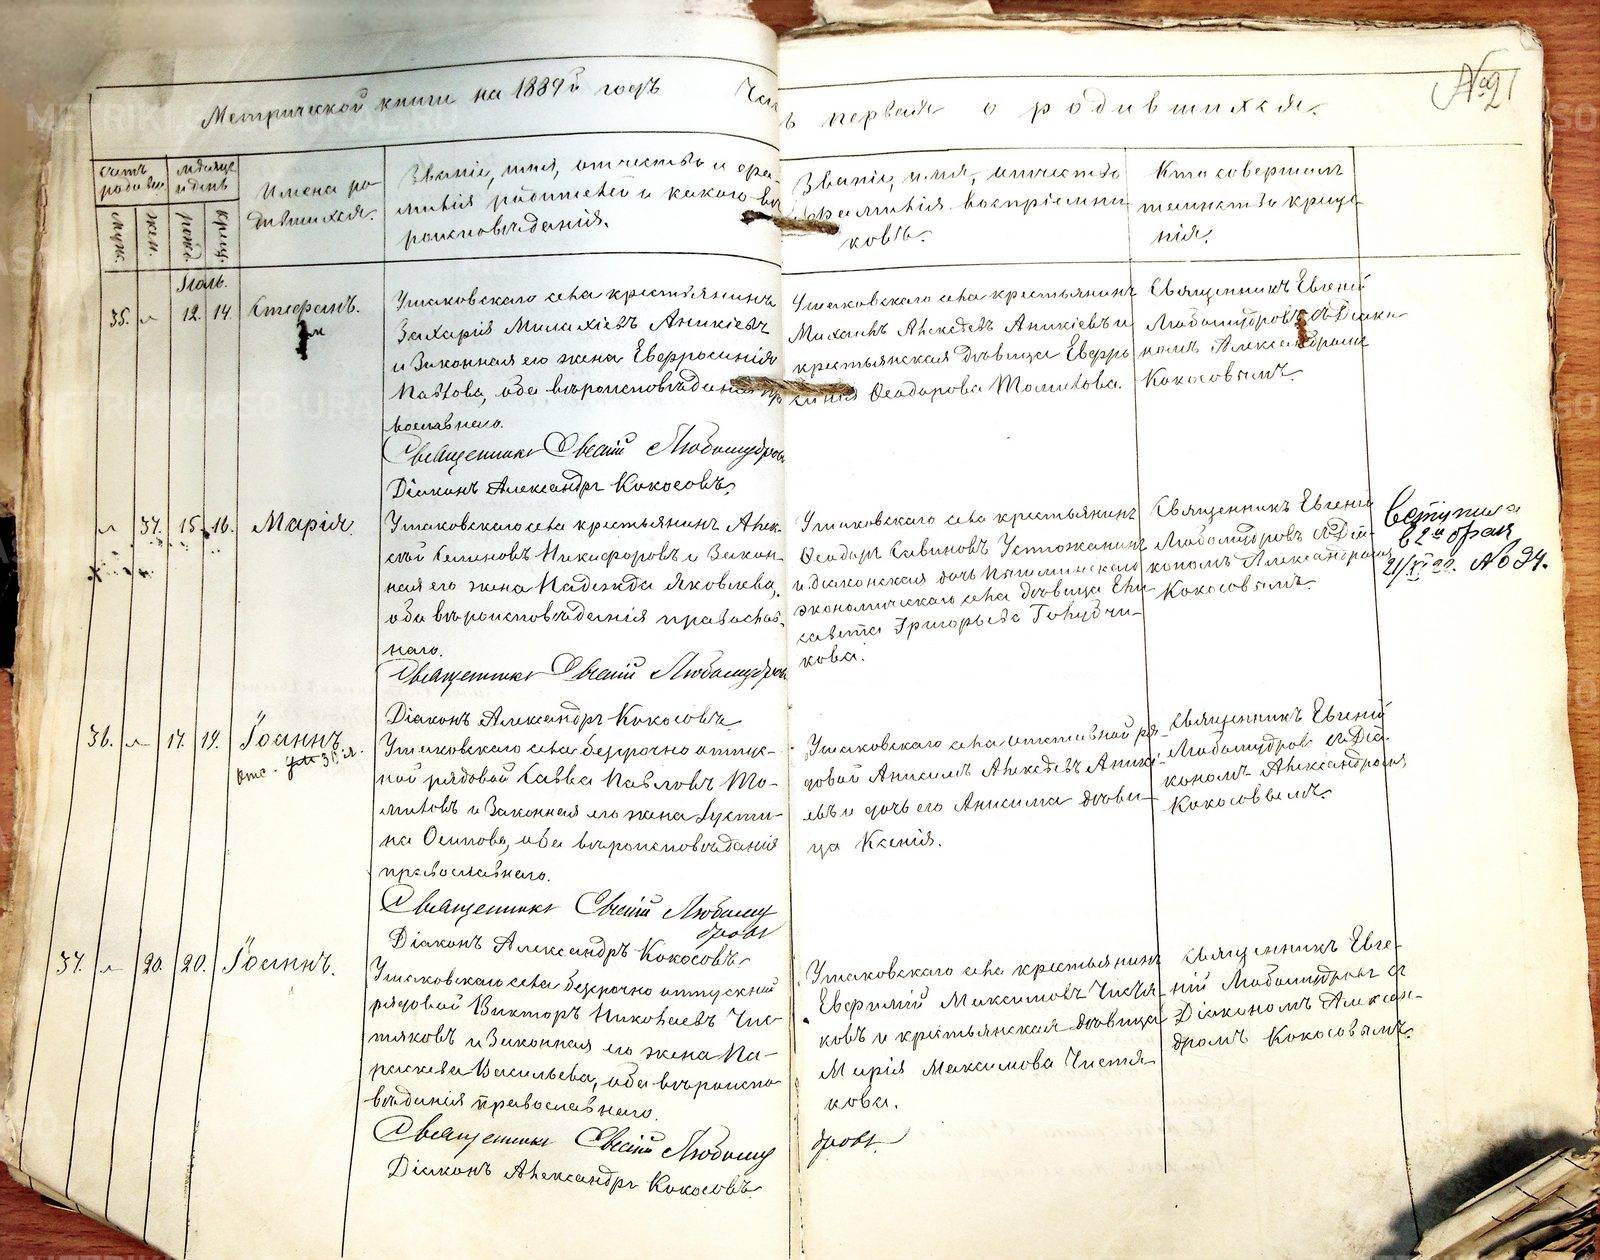 Метрической книги на 1889й годъ Часть первая о родившихся.
№ 21
счетъ родивш.
мѣсяцъ и день
муж.
жен.
рожд.
крещ.
Имена ро-
дившихся.
Званіе, имя, отчество и фа-
милія родителей и какого вѣ-
роисповѣданія.
Званіе, имя, отчество
и фамилія воспріемни-
ковъ.
Кто совершалъ
таинство креще-
нія.
Іюль.
35. " 12. 14
Стефанъ.
Ушаковскаго села крестьянинъ
Захарія Аникіевъ
и законная его жена Евфросинія
Павлова, оба вѣроисповѣданія пра-
вославнаго.
Священникъ Евгеній Любомудровъ
Діаконъ Александръ Кокосовъ.
Ушаковскаго села крестьянинъ
Михаилъ Алексѣевъ Аникіевъ и
крестьянская дѣвица Евфро-
синія Ѳеодорова Томилова.
Священникъ Евгеній
Любомудровъ съ Діако-
номъ Александромъ
Кокосовымъ.
" 37. 15. 16.
Марія.
Ушаковскаго села крестьянинъ Алек-
сѣй Никифоровъ и закон-
ная его жена Надежда Яковлева,
оба вѣроисповѣданія православ-
наго.
Священникъ Евгеній Любомудровъ
Діаконъ Александръ Кокосовъ.
Ушаковскаго села крестьянинъ
Ѳеодоръ Савиновъ Устюжанинъ
и діаконская дочь Пышминского
экономическаго села дѣвица Ели-
савета Григорьева Голубчи-
кова.
Священникъ Евгеній
Любомудровъ съ Діа-
кономъ Александромъ
Кокосовымъ.
Вступила
в 2й брак
21/XI 22. № 24.
36. " 17. 19.
Іоаннъ
Ушаковскаго села безсрочно отпуск-
ной рядовой Савва Павловъ То-
миловъ и законная его жена Іусти-
на Осипова, оба вѣроисповѣданія
православнаго.
Священникъ Евгеній Любому-
дровъ
Діаконъ Александръ Кокосовъ.
Ушаковскаго села отставной ря-
довой Анисимъ Алексѣевъ Аникі-
евъ и дочь его Анисима дѣви-
ца Ксенія.
Священникъ Евгеній
Любомудровъ съ Діа-
кономъ Александромъ
Кокосовымъ.
37. " 20. 20.
Іоаннъ.
Ушаковскаго села безсрочно отпускной
рядовой Викторъ Николаевъ Чис-
тяковъ и законная его жена Па-
раскева Васильева, оба вѣроиспо-
вѣданія православнаго.
Священникъ Евгеній Любому-
дровъ.
Діаконъ Александръ Кокосовъ.
Ушаковскаго села крестьянинъ
Евфимій Максимовъ Чистя-
ковъ и крестьянская дѣвица
Марія Максимова Чистя-
кова.
Священникъ Евге-
ній Любомудровъ съ
Діакономъ Алексан-
дромъ Кокосовымъ.